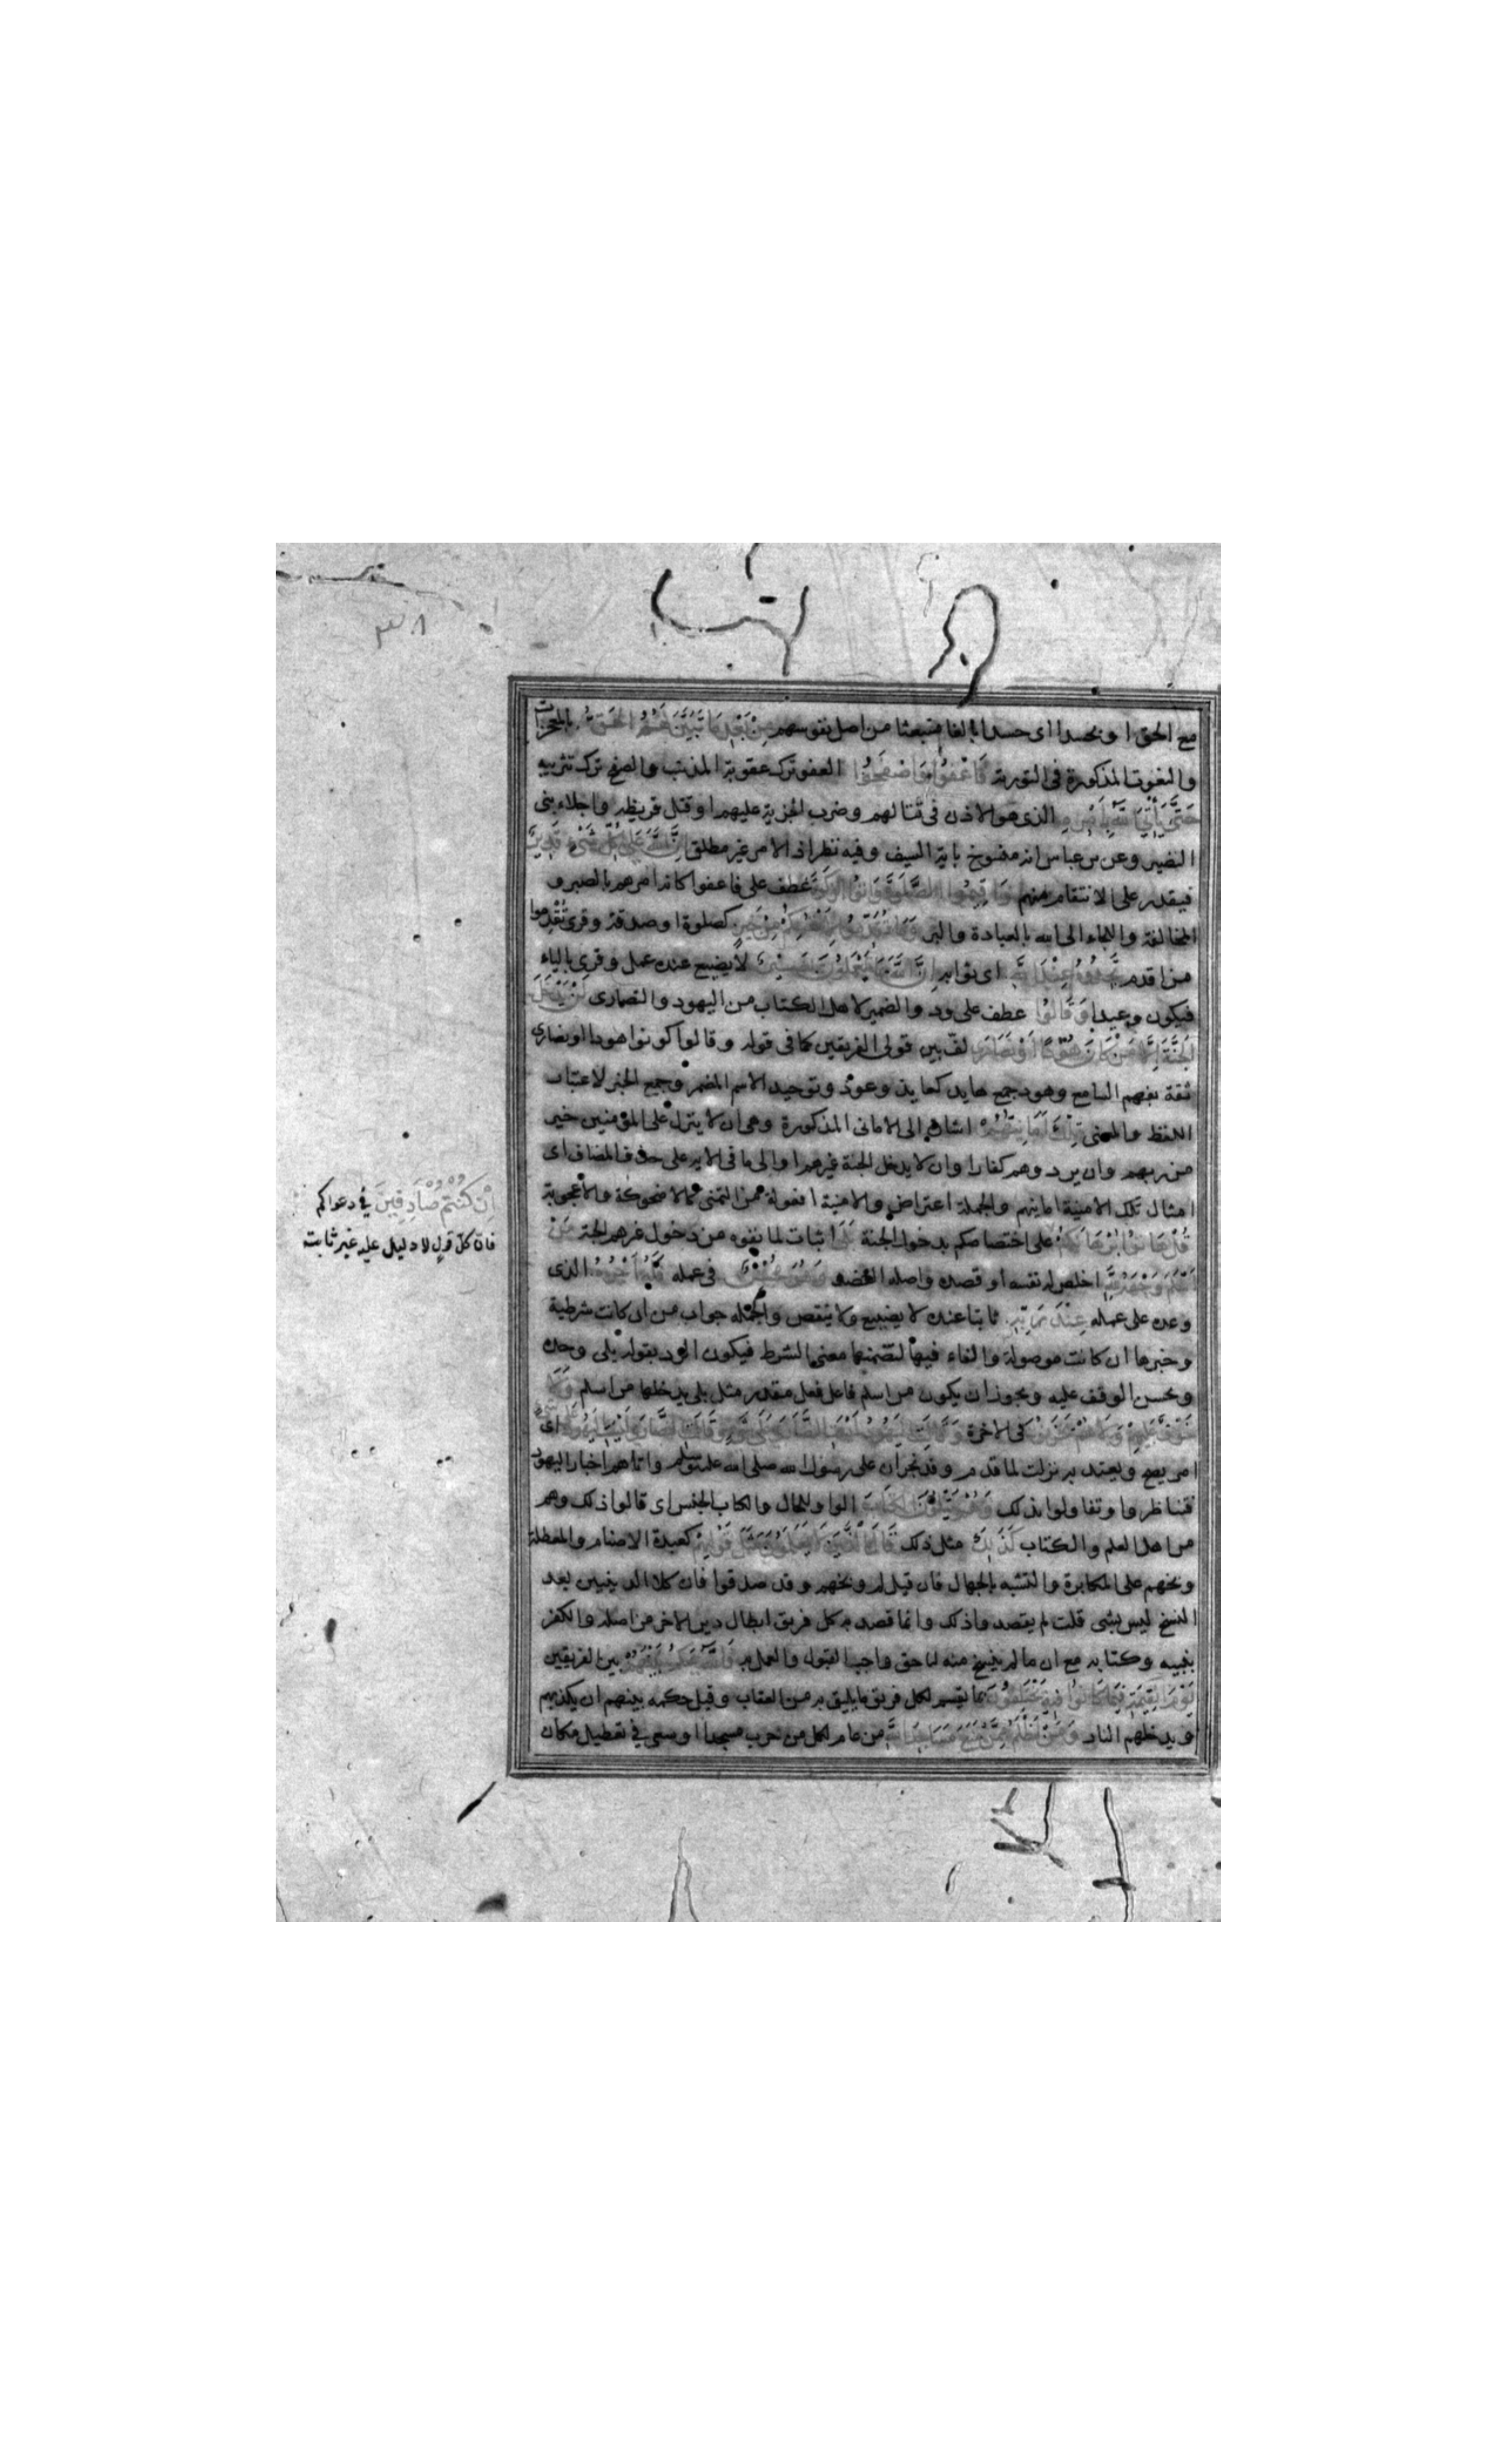 ٣٨
مع الحق او بحسدا اى حسدا بالغا منبعثا من اصل نفوسهم مِنْ بَعْدِ مَا تَبَيَّنَ لَهُمُ الْحَقُّ بالمعجزات
والنعوت المذكورة فى التورية فَاعْفُوا وَاصْفَحُوا العفو ترك عقوبة المذنب والصفح ترك تثريبه
حَتَّى يَأْتِيَ اللَّهُ بِأَمْرِهِ الذى هو الاذن فى قتالهم وضرب الجزية عليهم او قتل قريظة واجلاء بنى
النضير وعن بن عباس انه منسوخ باية السيف وفيه نظر اذ الامر غير مطلق إِنَّ اللَّهَ عَلَى كُلِّ شَيْءٍ قَدِيرٌ
فيقدر على الانتقام منهم وَأَقِيمُوا الصَّلٰوةَ وَآتُوا الزَّكٰوةَ عطف على فاعفوا كانه امرهم بالصبر و
المخالفة واللجاء الى الله بالعبادة والبر وَمَا تُقَدِّمُوا لِأَنْفُسِكُمْ مِنْ خَيْرٍ كصلوة او صدقة وقرئ تُقْدِموا
من اقدم تَجِدُوهُ عِنْدَ اللَّهِ اى ثوابه إِنَّ اللَّهَ بِمَا تَعْمَلُونَ بَصِيرٌ لا يضيع عنده عمل وقرى بالياء
فيكون وعيدا وَقَالُوا عطف على ود والضمير لاهل الكتاب من اليهود والنصارى لَنْ يَدْخُلَ
الْجَنَّةَ إِلَّا مَنْ كَانَ هُودًا أَوْ نَصَارَى لف بين قولى الفريقين كما فى قوله وقالوا كونوا هودا او نصارى
ثقة بفهم السامع وهود جمع هايد كعايذ وعوذ وتوحيد الاسم المضمر وجمع الخبر لاعتبار
اللفظ والمعنى تِلْكَ أَمَانِيُّهُمْ اشارة الى الامانى المذكورة وهى ان لا ينزل على المؤمنين خير
من ربهم وان يردوهم كفارا وان لا يدخل الجنة غيرهم او الى ما فى الاية على حذف المضاف اى
امثال تلك الامنية امانيهم والجملة اعتراض والامنية افعولة من التمنى كالاضحوكة والاعجوبة
قُلْ هَاتُوا بُرْهَانَكُمْ على اختصاصكم بدخول الجنة بَلَى اثبات لما نفوه من دخول غيرهم الجنة مَنْ
أَسْلَمَ وَجْهَهُ لِلَّهِ اخلص له نفسه او قصده واصله العضو وَهُوَ مُحْسِنٌ فى عمله فَلَهُ أَجْرُهُ الذى
وعده على عمله عِنْدَ رَبِّهِ ثابتا عنده لا يضيع ولا ينقص والجملة جواب من ان كانت شرطية
وخبرها ان كانت موصولة والفاء فيها لتضمنها معنى الشرط فيكون الرد بقوله بلى وحده
ويحسن الوقف عليه ويجوز ان يكون من اسلم فاعل فعل مقدر مثل بلى يدخلها من اسلم وَلَا
خَوْفٌ عَلَيْهِمْ وَلَا هُمْ يَحْزَنُونَ فى الاخرة وَقَالَتِ الْيَهُودُ لَيْسَتِ النَّصَارَى عَلَى شَيْءٍ وَقَالَتِ النَّصَارَى لَيْسَتِ الْيَهُودُ عَلَى شَيْءٍ اى
امر يصح ويعتد به نزلت لما قدم وفد نجران على رسول الله صلى الله عليه وسلم واتاهم احبار اليهود
فتناظروا وتقاولوا بذلك وَهُمْ يَتْلُونَ الْكِتَابَ الواو للحال والكتاب للجنس اى قالوا ذلك وهم
من اهل العلم والكتاب كَذَلِكَ مثل ذلك قَالَ الَّذِينَ لَا يَعْلَمُونَ مِثْلَ قَوْلِهِمْ كعبدة الاصنام والمعطلة
وبخهم على المكابرة والتشبه بالجهال فان قيل لم وبخهم وقد صدقوا فان كلا الدينين بعد
النسخ ليس بشى قلت لم يقصدوا ذلك وانما قصد به كل فريق ابطال دين الاخر من اصله والكفر
بنبيه وكتابه مع ان ما لم ينسخ منه لنا حق واجب القبول والعمل به فَاللَّهُ يَحْكُمُ بَيْنَهُمْ بين الفريقين
يَوْمَ الْقِيٰمَةِ فِيمَا كَانُوا فِيهِ يَخْتَلِفُونَ بما يقسم لكل فريق ما يليق به من العقاب وقيل حكمه بينهم ان يكذبهم
ويدخلهم النار وَمَنْ أَظْلَمُ مِمَّنْ مَنَعَ مَسَاجِدَ اللَّهِ من عام لكل من خرب مسجدا او سعى فى تعطيل مكان
إِنْ كُنْتُمْ صَادِقِينَ فى دعواكم
فان كل قول لا دليل عليه غير ثابت